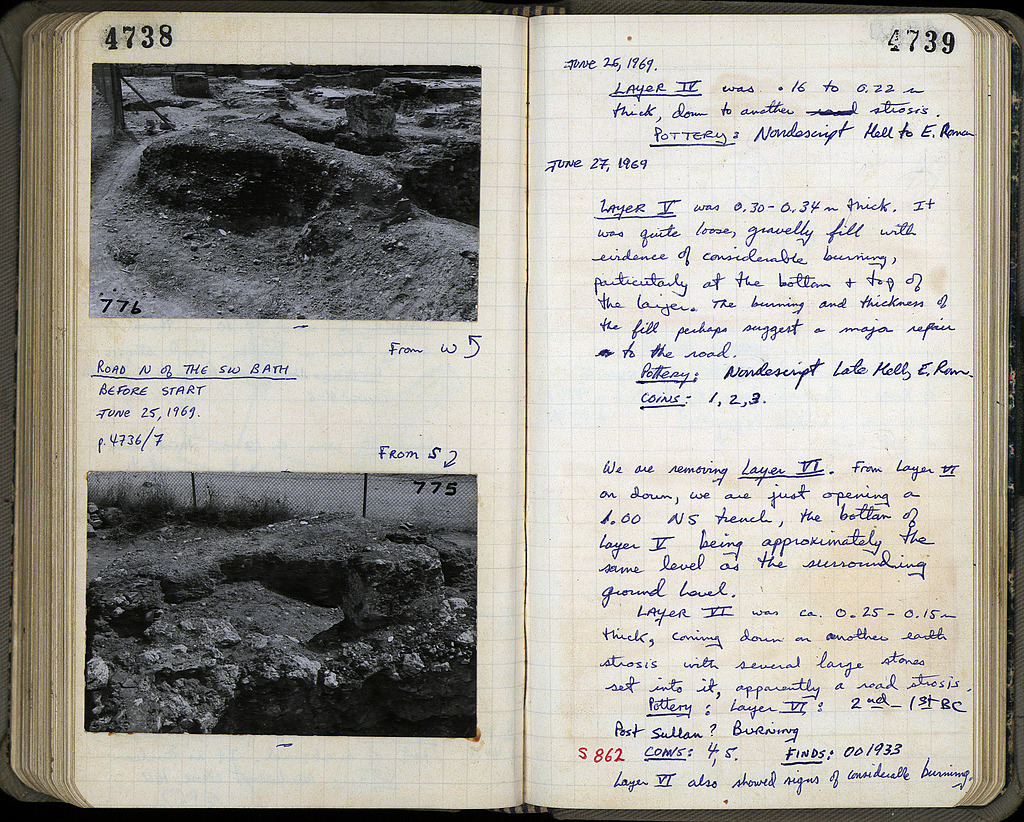 4738
776
From W
ROAD N of THE SW BATH
BEFORE START
JUNE 25, 1969.
p. 4736/7
FROM S
775
4739
JUNE 26, 1969.
LAYER IV was .16 to 0.22 m
thick, down to another strosis.
POTTERY: Nondescript Hell to E. Roman
JUNE 27, 1969
LAYER V was 0.30-0.34 m thick. It
was quite loose, gravelly fill with
evidence of considerable burning,
particularly at the bottom + top of
the layer. The burning and thickness of
the fill perhaps suggest a major repair
to the road.
Pottery: Nondescript Late Hell, E. Rom.
COINS: 1, 2, 3.
We are removing Layer VI. From Layer VI
on down, we are just opening a
1.00 NS trench, the bottom of
Layer V being approximately the
same level as the surrounding
ground level.
LAYER VI was ca. 0.25-0.15 m
thick, coming down on another earth
strosis with several large stones
set into it, apparently a road strosis.
Pottery: Layer VI: 2nd-1st BC
Post Sullan? Burning
S 862 COINS: 4, 5. FINDS: 001933
Layer VI also showed signs of considerable burning.